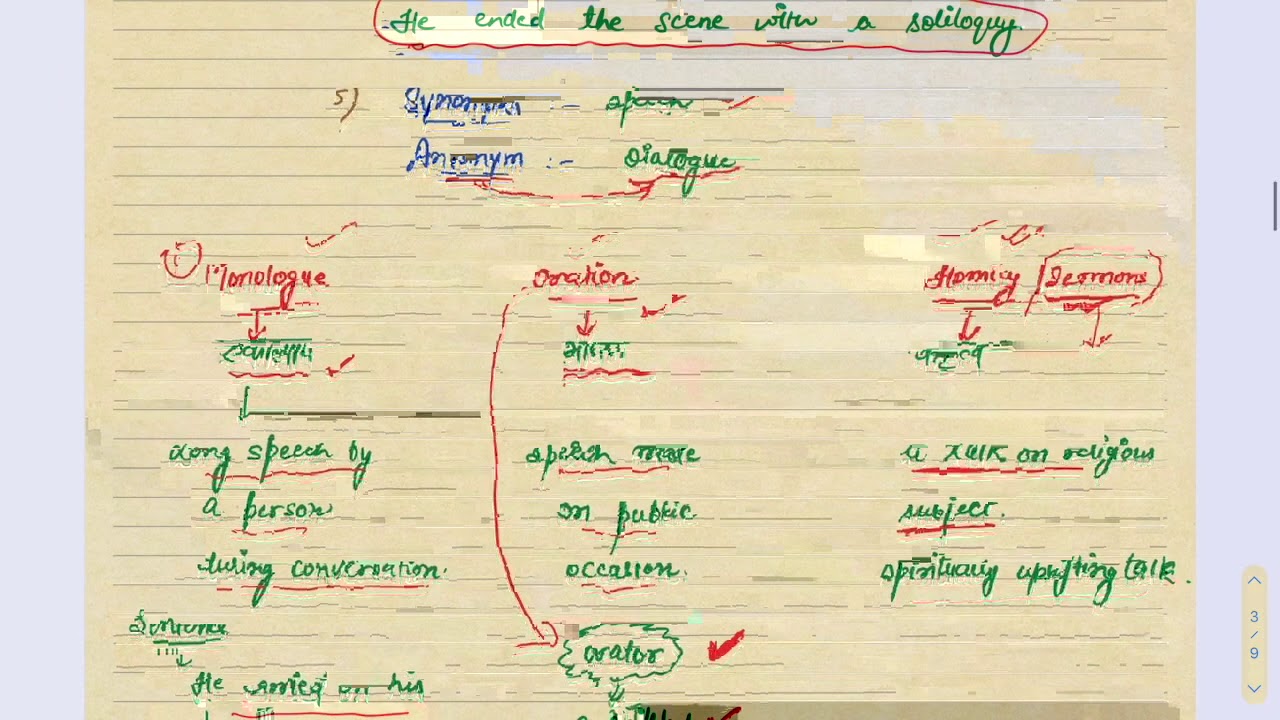 He ended the scene with a soliloquy.
5) Synonyms :-
Antonym :- Dialogue
① Monologue Oration Homily / Sermons
भाषण
Long speech by speech made a talk on religious
a person on public subject.
during conversation. occasion. spiritually uplifting talk.
Sentence orator
He carried on his
3
/
9